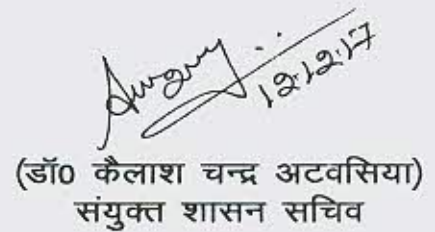 12.12.17
(डॉ0 कैलाश चन्द्र अटवसिया)
संयुक्त शासन सचिव